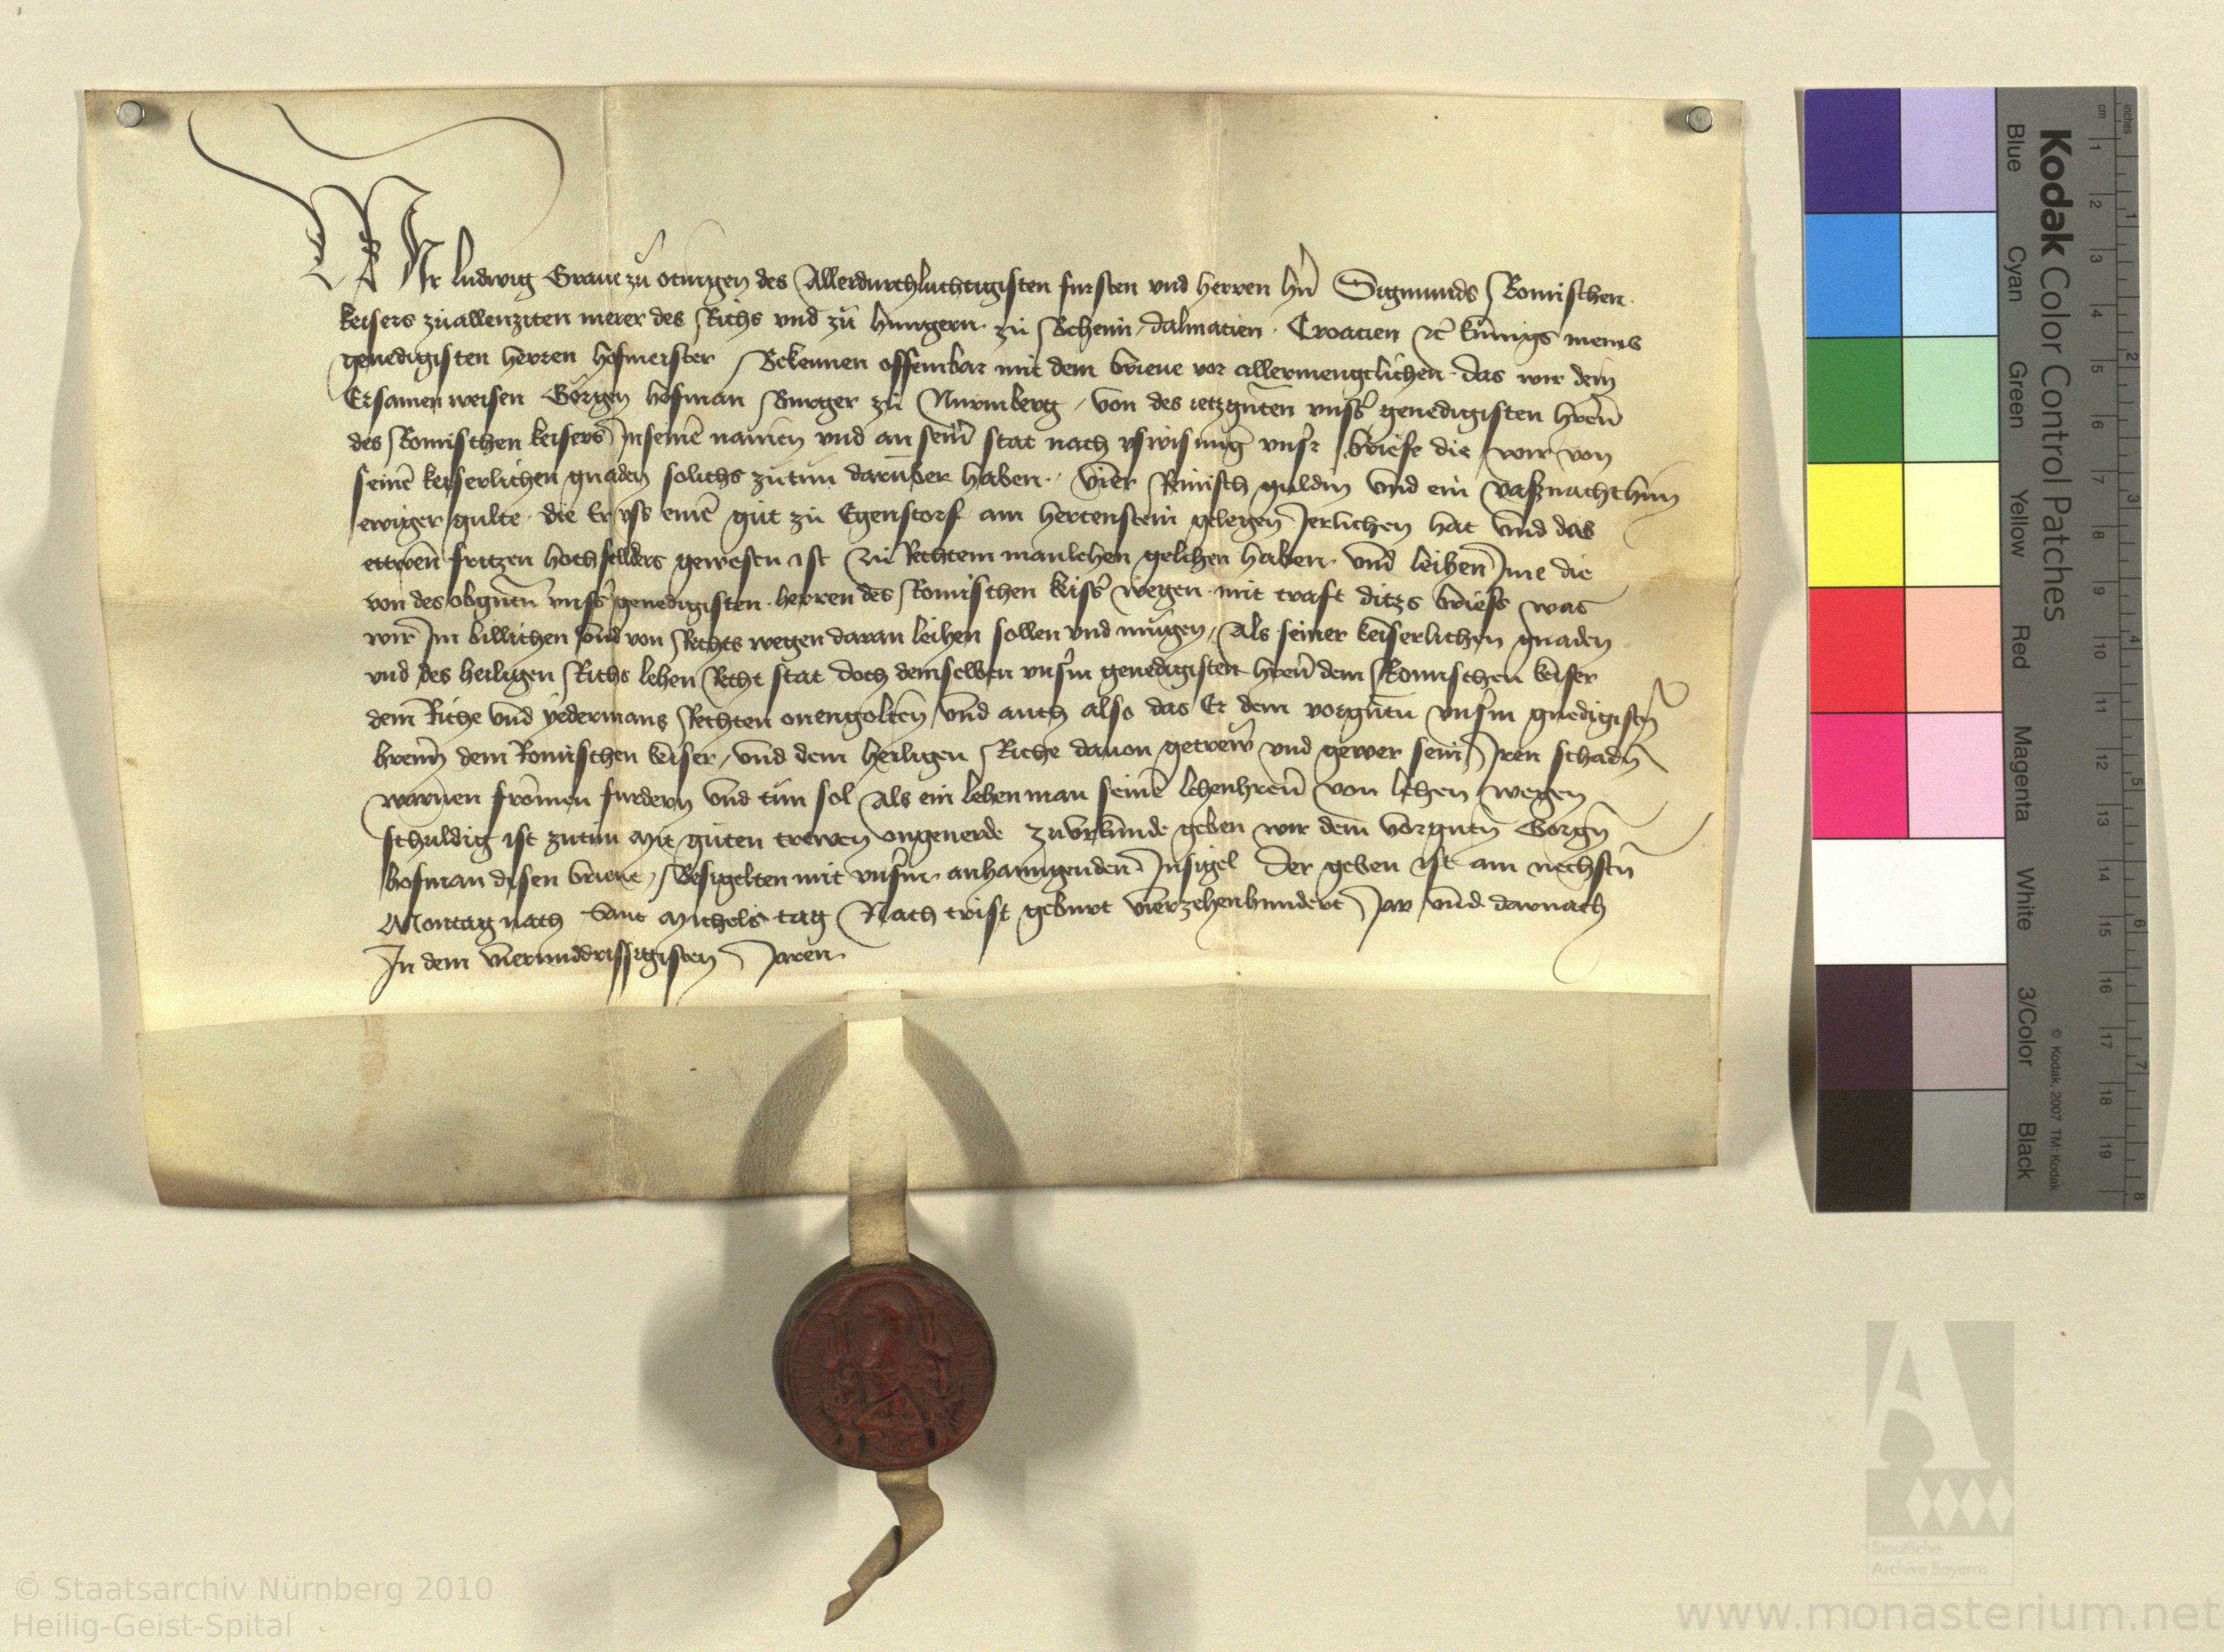 WIr ludwig Graue zů otingen des Allerdurchluchtigisten fursten vnd herren hrñ Sigmunds Romischen
keisers zuallenziten merer des Richs vnd zů hungern zů Behem dalmatien Croatien ꝛc kůnigs meins
genedigisten herren hofmeister Bekennen offembar mit dem brieue vor allermengclichen das wir dem
Ersamen weisen Görgen hofman Burger zů Nurmberg von des ietzgnten̄ vnsers genedigisten hren̄
des Romischen keisers In seinē namen vnd an seinr̄ stat nach vswisung vnsr̄ briefe die wir von
seinē keiserlichen gnaden solichs zutun darůber haben vier Rinisch guldin vnd ein vaßnachthun
ewiger gulte die Er vss einē gůt zu Egenstorf am hertenstein gelegen Jerlichen hat vnd das
ettwen̄ fritzen hochfelders gewesen ist zu Rechtem manlehen gelihen haben vnd leihen Ime die
von des obgntn̄ vnsrs̄ genedigisten herren des Romischen keisrs̄ wegen mit craft ditzs briefs was
wir Im billichen vnd von Rechts wegen daran leihen sollen vnd mugen Als seiner keiserlichen gnaden
vnd des heiligen Richs lehen Recht stat doch demselben vnsrm̄ genedigisten hren̄ dem Romischen keiser
dem Riche vnd yedermans Rechten onengolten vnd auch also das Er dem vorgntn̄ vnsrm̄ gnedigistn̄
hren̄ dem Romischen keiser vnd dem heiligen Riche dauon getrew vnd gewer sein Iren schadn̄
warnen frömen furdern vnd tůn sol Als ein lehenman seinē lehenhren̄ von lehen wegen
schuldig ist zutůn Mit gůten trewen ongeuerde zu vrkunde geben wir dem vorgntn̄ Gorgn̄
hofman disen brieue Besigelten mit vnsrm̄ anhanngenden Insigel Der geben ist am nechstn̄
Montag nach Sant Michels tag Nach crist geburt vierzehenhundert Jar vnd darnach
In dem vierunddrissigisten Jaren
Kodak Color Control Patches
Blue Cyan Green Yellow Red Magenta White 3/Color Black
inches 1 2 3 4 5 6 7 8
cm 1 2 3 4 5 6 7 8 9 10 11 12 13 14 15 16 17 18 19
© Kodak, 2007 TM: Kodak
Staatliche
Archive Bayerns
© Staatsarchiv Nürnberg 2010
Heilig-Geist-Spital
www.monasterium.net